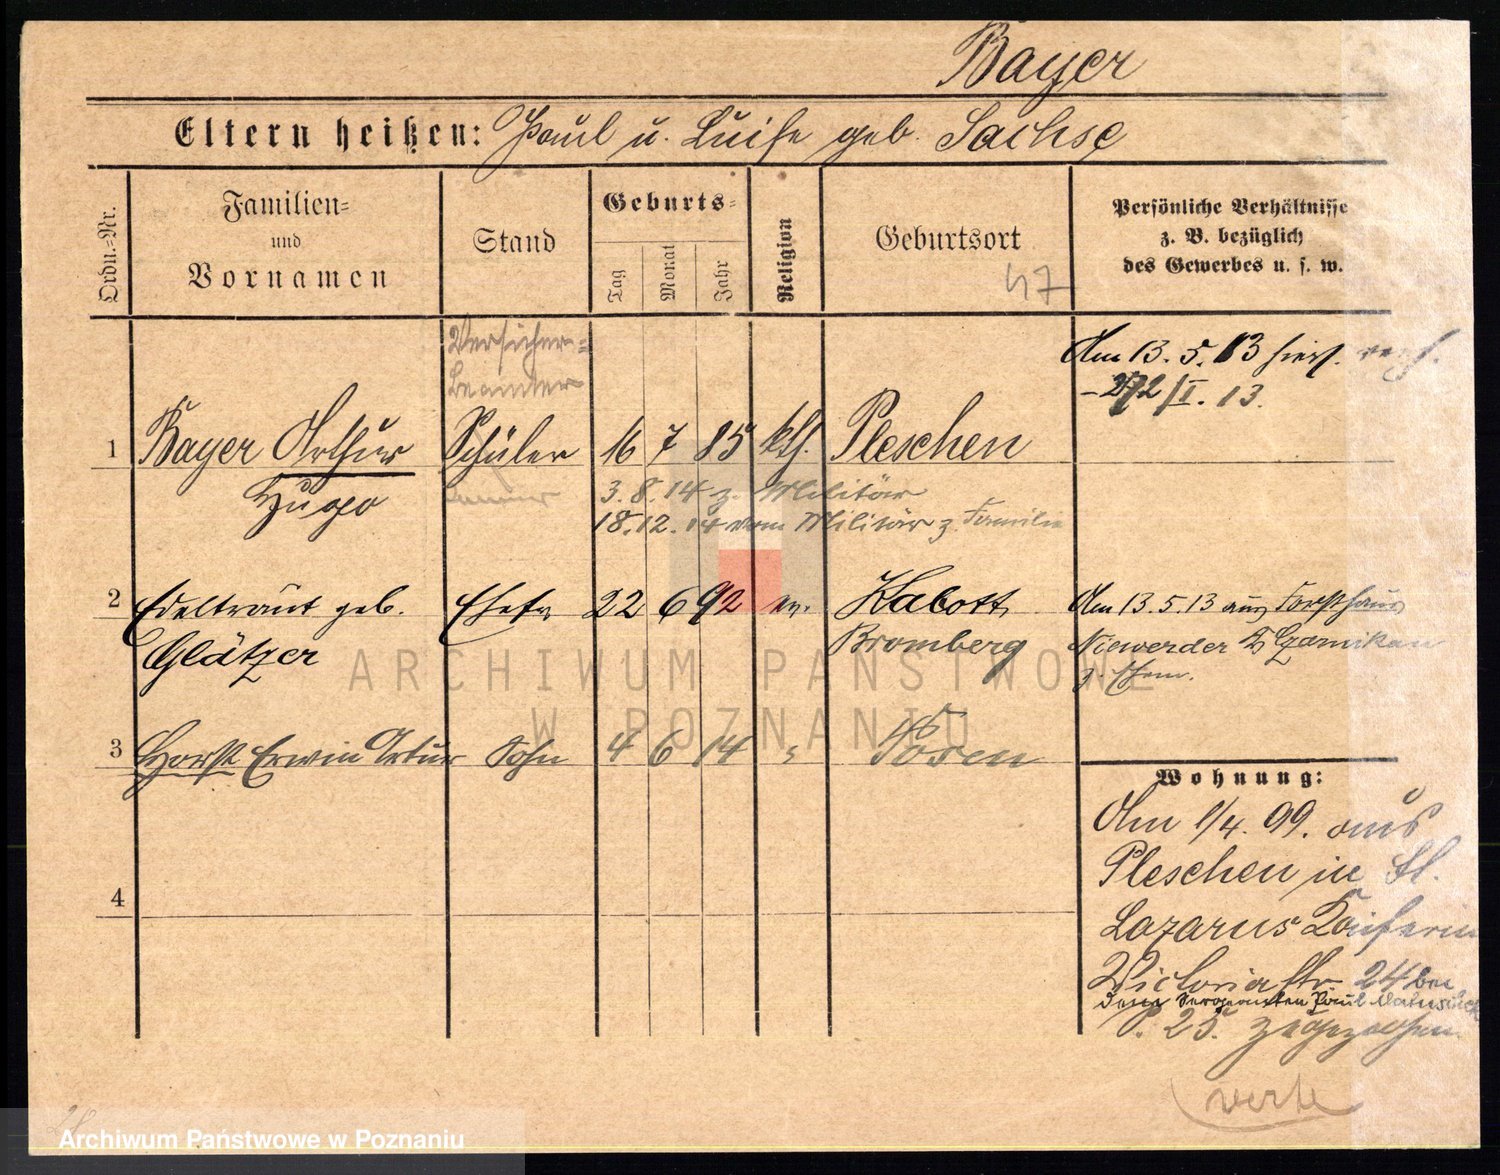 Bayer
Eltern heißen: Paul u. Luise geb. Sachse
Ordn.-Nr.
Familien-
und
Vornamen
Stand
Geburts-
Tag
Monat
Jahr
Religion
Geburtsort
47
Persönliche Verhältnisse
z. B. bezüglich
des Gewerbes u. s. w.
Versicher-
Beamter
Am 13. 5. 13 hier
- 272/I. 13.
1 Bayer Arthur Schüler 16 7 85 kth. Pleschen
Hugo
3. 8. 14 z. Militär
18. 12. 14 vom Militär z. Familie
2 Edeltraut geb. Ehefr 22 6 92 ev. Kabott
Glätzer
Bromberg
Am 13. 5. 13 aus Forsthaus
Niewerder Czarnikau
z. Ehem.
3 Horst Erwin Artur Sohn 4 6 14 " Posen
4
Wohnung:
Am 1/4. 99. aus
Pleschen in St.
Lazarus Kaiserin
Victoriastr. 24 bei
dem Sergeanten Paul
P. 25. zugezogen.
verte
ARCHIWUM PAŃSTWOWE
W POZNANIU
Archiwum Państwowe w Poznaniu